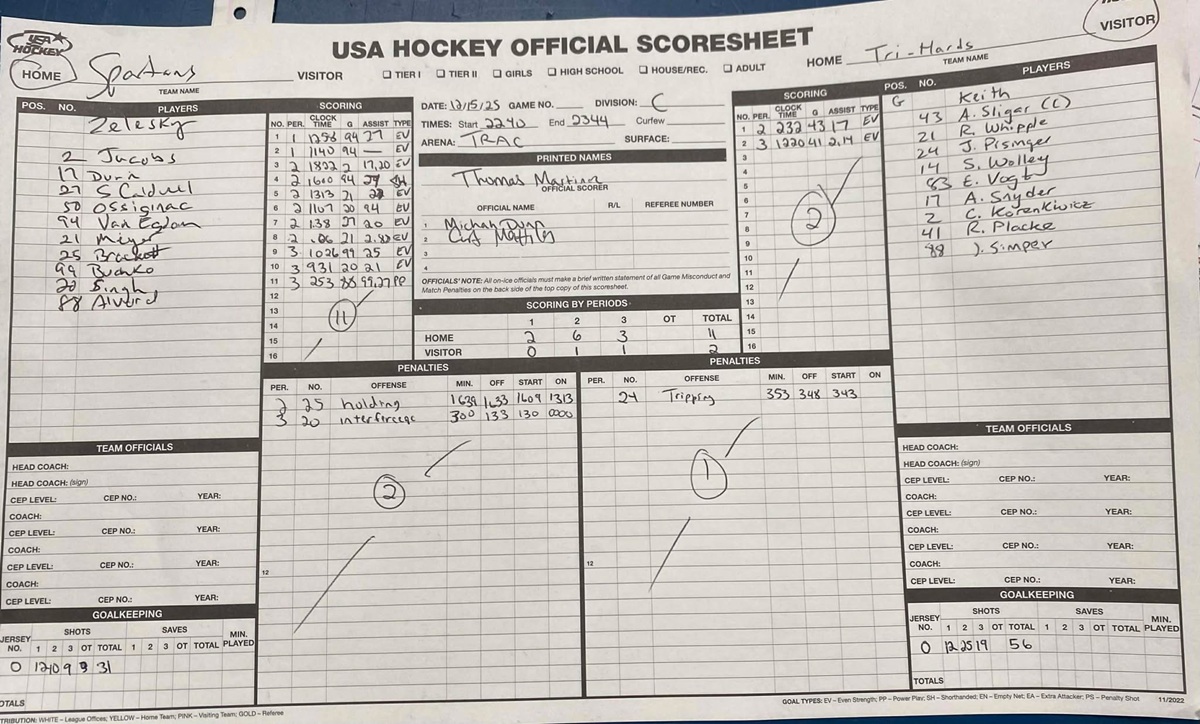 USA HOCKEY
USA HOCKEY OFFICIAL SCORESHEET
HOME Spartans VISITOR
TEAM NAME
☐ TIER I ☐ TIER II ☐ GIRLS ☐ HIGH SCHOOL ☐ HOUSE/REC. ☐ ADULT
HOME Tri-Hards VISITOR
TEAM NAME
POS. NO. PLAYERS
Zelesky
2 Jacobs
17 Dunn
27 S Caldwell
50 Ossiginac
94 Van Egdom
21 Meyer
25 Brackett
99 Buchko
20 Singh
88 Alvord
SCORING
NO. PER. CLOCK TIME G ASSIST TYPE
1 1 1256 94 27 EV
2 1 1140 94 — EV
3 2 1832 2 17,20 EV
4 2 1600 94 27 SH
5 2 1313 21 EV
6 2 1107 20 94 EV
7 2 1.38 27 20 EV
8 2 .06 21 2,88 EV
9 3 1026 99 25 EV
10 3 931 20 21 EV
11 3 253 88 99,27 PP
12
13
14
15
16
11
DATE: 12/15/25 GAME NO. DIVISION: C
TIMES: Start 2240 End 2344 Curfew
ARENA: TRAC SURFACE:
PRINTED NAMES
Thomas Martinez
OFFICIAL SCORER
OFFICIAL NAME R/L REFEREE NUMBER
1 Michah Dunn
2
3
4
OFFICIALS' NOTE: All on-ice officials must make a brief written statement of all Game Misconduct and
Match Penalties on the back side of the top copy of this scoresheet.
SCORING BY PERIODS
1 2 3 OT TOTAL
HOME 2 6 3 11
VISITOR 0 1 1 2
SCORING
NO. PER. CLOCK TIME G ASSIST TYPE
1 2 232 43 17 EV
2 3 1220 41 2,14 EV
3
4
5
6
7
8
9
10
11
12
13
14
15
16
2
POS. NO. PLAYERS
G Keith
43 A. Sligar (C)
21 R. Whipple
24 J. Pisinger
14 S. Wolley
83 E. Vogty
17 A. Snyder
2 C. Korenkiwicz
41 R. Placke
88 J. Simper
PENALTIES
PER. NO. OFFENSE MIN. OFF START ON
2 25 holding 1639 1633 1609 1313
3 20 interference 300 133 130 0000
2
12
PENALTIES
PER. NO. OFFENSE MIN. OFF START ON
24 Tripping 353 348 343
1
12
TEAM OFFICIALS
HEAD COACH:
HEAD COACH: (sign)
CEP LEVEL: CEP NO.: YEAR:
COACH:
CEP LEVEL: CEP NO.: YEAR:
COACH:
CEP LEVEL: CEP NO.: YEAR:
COACH:
CEP LEVEL: CEP NO.: YEAR:
GOALKEEPING
JERSEY NO. SHOTS 1 2 3 OT TOTAL SAVES 1 2 3 OT TOTAL MIN. PLAYED
0 12 10 9 31
OTALS
TEAM OFFICIALS
HEAD COACH:
HEAD COACH: (sign)
CEP LEVEL: CEP NO.: YEAR:
COACH:
CEP LEVEL: CEP NO.: YEAR:
COACH:
CEP LEVEL: CEP NO.: YEAR:
COACH:
CEP LEVEL: CEP NO.: YEAR:
GOALKEEPING
JERSEY NO. SHOTS 1 2 3 OT TOTAL SAVES 1 2 3 OT TOTAL MIN. PLAYED
0 12 25 19 56
TOTALS
TRIBUTION: WHITE – League Offices; YELLOW – Home Team; PINK – Visiting Team; GOLD – Referee
GOAL TYPES: EV – Even Strength; PP – Power Play; SH – Shorthanded; EN – Empty Net; EA – Extra Attacker; PS – Penalty Shot 11/2022